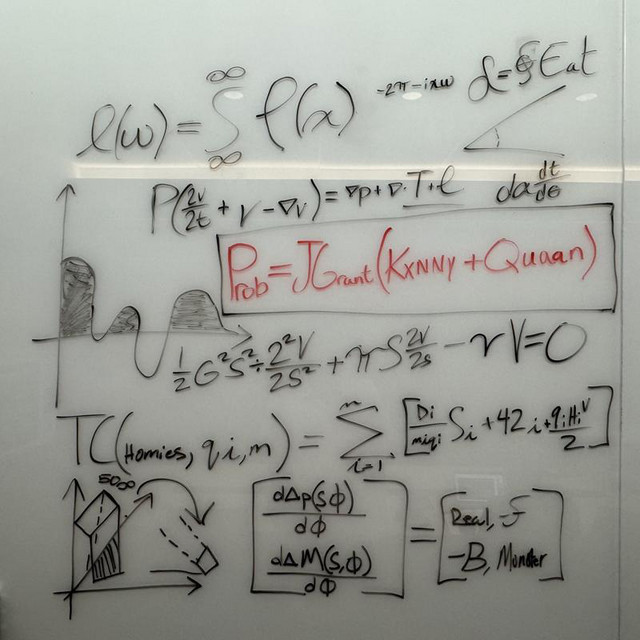 ℓ(ω) = ∫_∞^∞ f(x) -2π-ixω
α = $ Eat
P(2v/2t + v - ∇v) = ∇p + ∇·T + ℓ
da dt/dθ
Prob = JGrant(KXNNY + Quaan)
1/2 G²S² ÷ 2²V/2S² + πS 2V/2s - r V = 0
TC(Homies, q,i,m) = Σ_{i=1}^{m} [Di/miqi Si + 42i + qiHiV/2]
50∞
[dΔp(S,Φ)/dΦ
dΔM(S,Φ)/dΦ]
=
[Real, -f
-B, Monster]